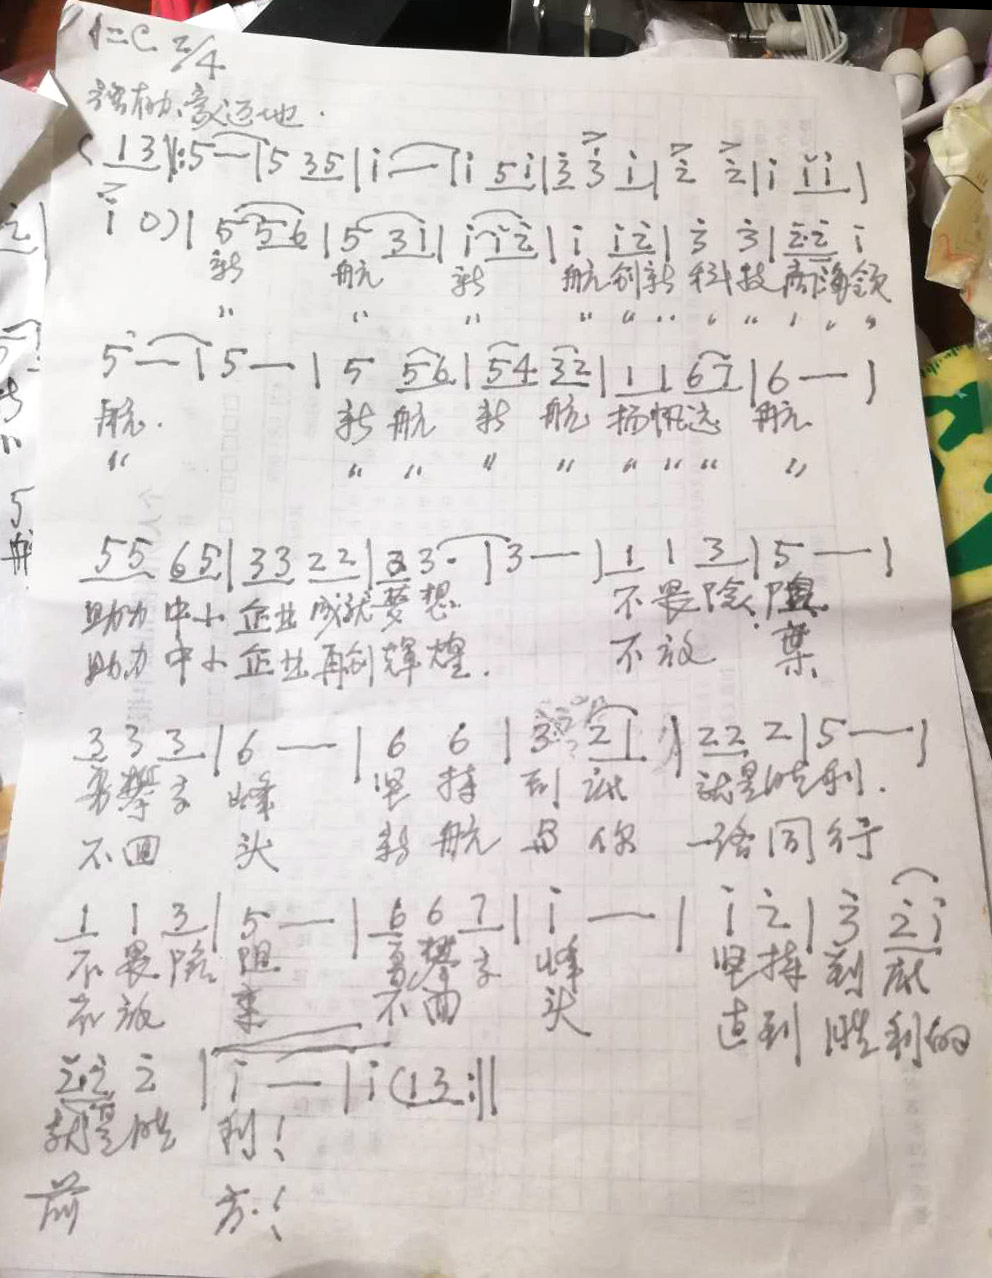 1=C 2/4
豪迈地.
(1 3 ‖: 5 — | 5 3 5 | i — | i 5 i | 3 3 i | 2 2 | i i i |
i 0) | 5 5 6 | 5 3 i | i i 2 | i i 2 | 3 3 | 2·2 i
新 航 新 航创新 科技 南海领
" " " " " " " " " " "
5 — | 5 — | 5 5 6 | 5 4 3 2 | 1 1 6 7 | 6 — |
航. 新 航 新 航 扬帆远 航
" " " " " " " " "
5 5 6 5 | 3 3 2 2 | 3 3· | 3 — | 1 1 3 | 5 — |
助力 中小 企业 成就 梦想. 不畏险阻.
助力 中小 企业 再创 辉煌. 不放 弃.
3 3 3 | 6 — | 6 6 | 3 2 1 | 2 2 2 | 5 — |
勇攀高 峰 坚 持 到 底 就是胜利.
不回 头 新 航 与 你 一路 同 行
1 1 3 | 5 — | 6 6 7 | i — | i 2 | 3 2 i
不畏险 阻 勇攀高 峰 坚持 到 底
不放 弃 不回 头 直到 胜利的
2·2 2 | i — | i (1 3 :‖
就是胜 利!
前 方!